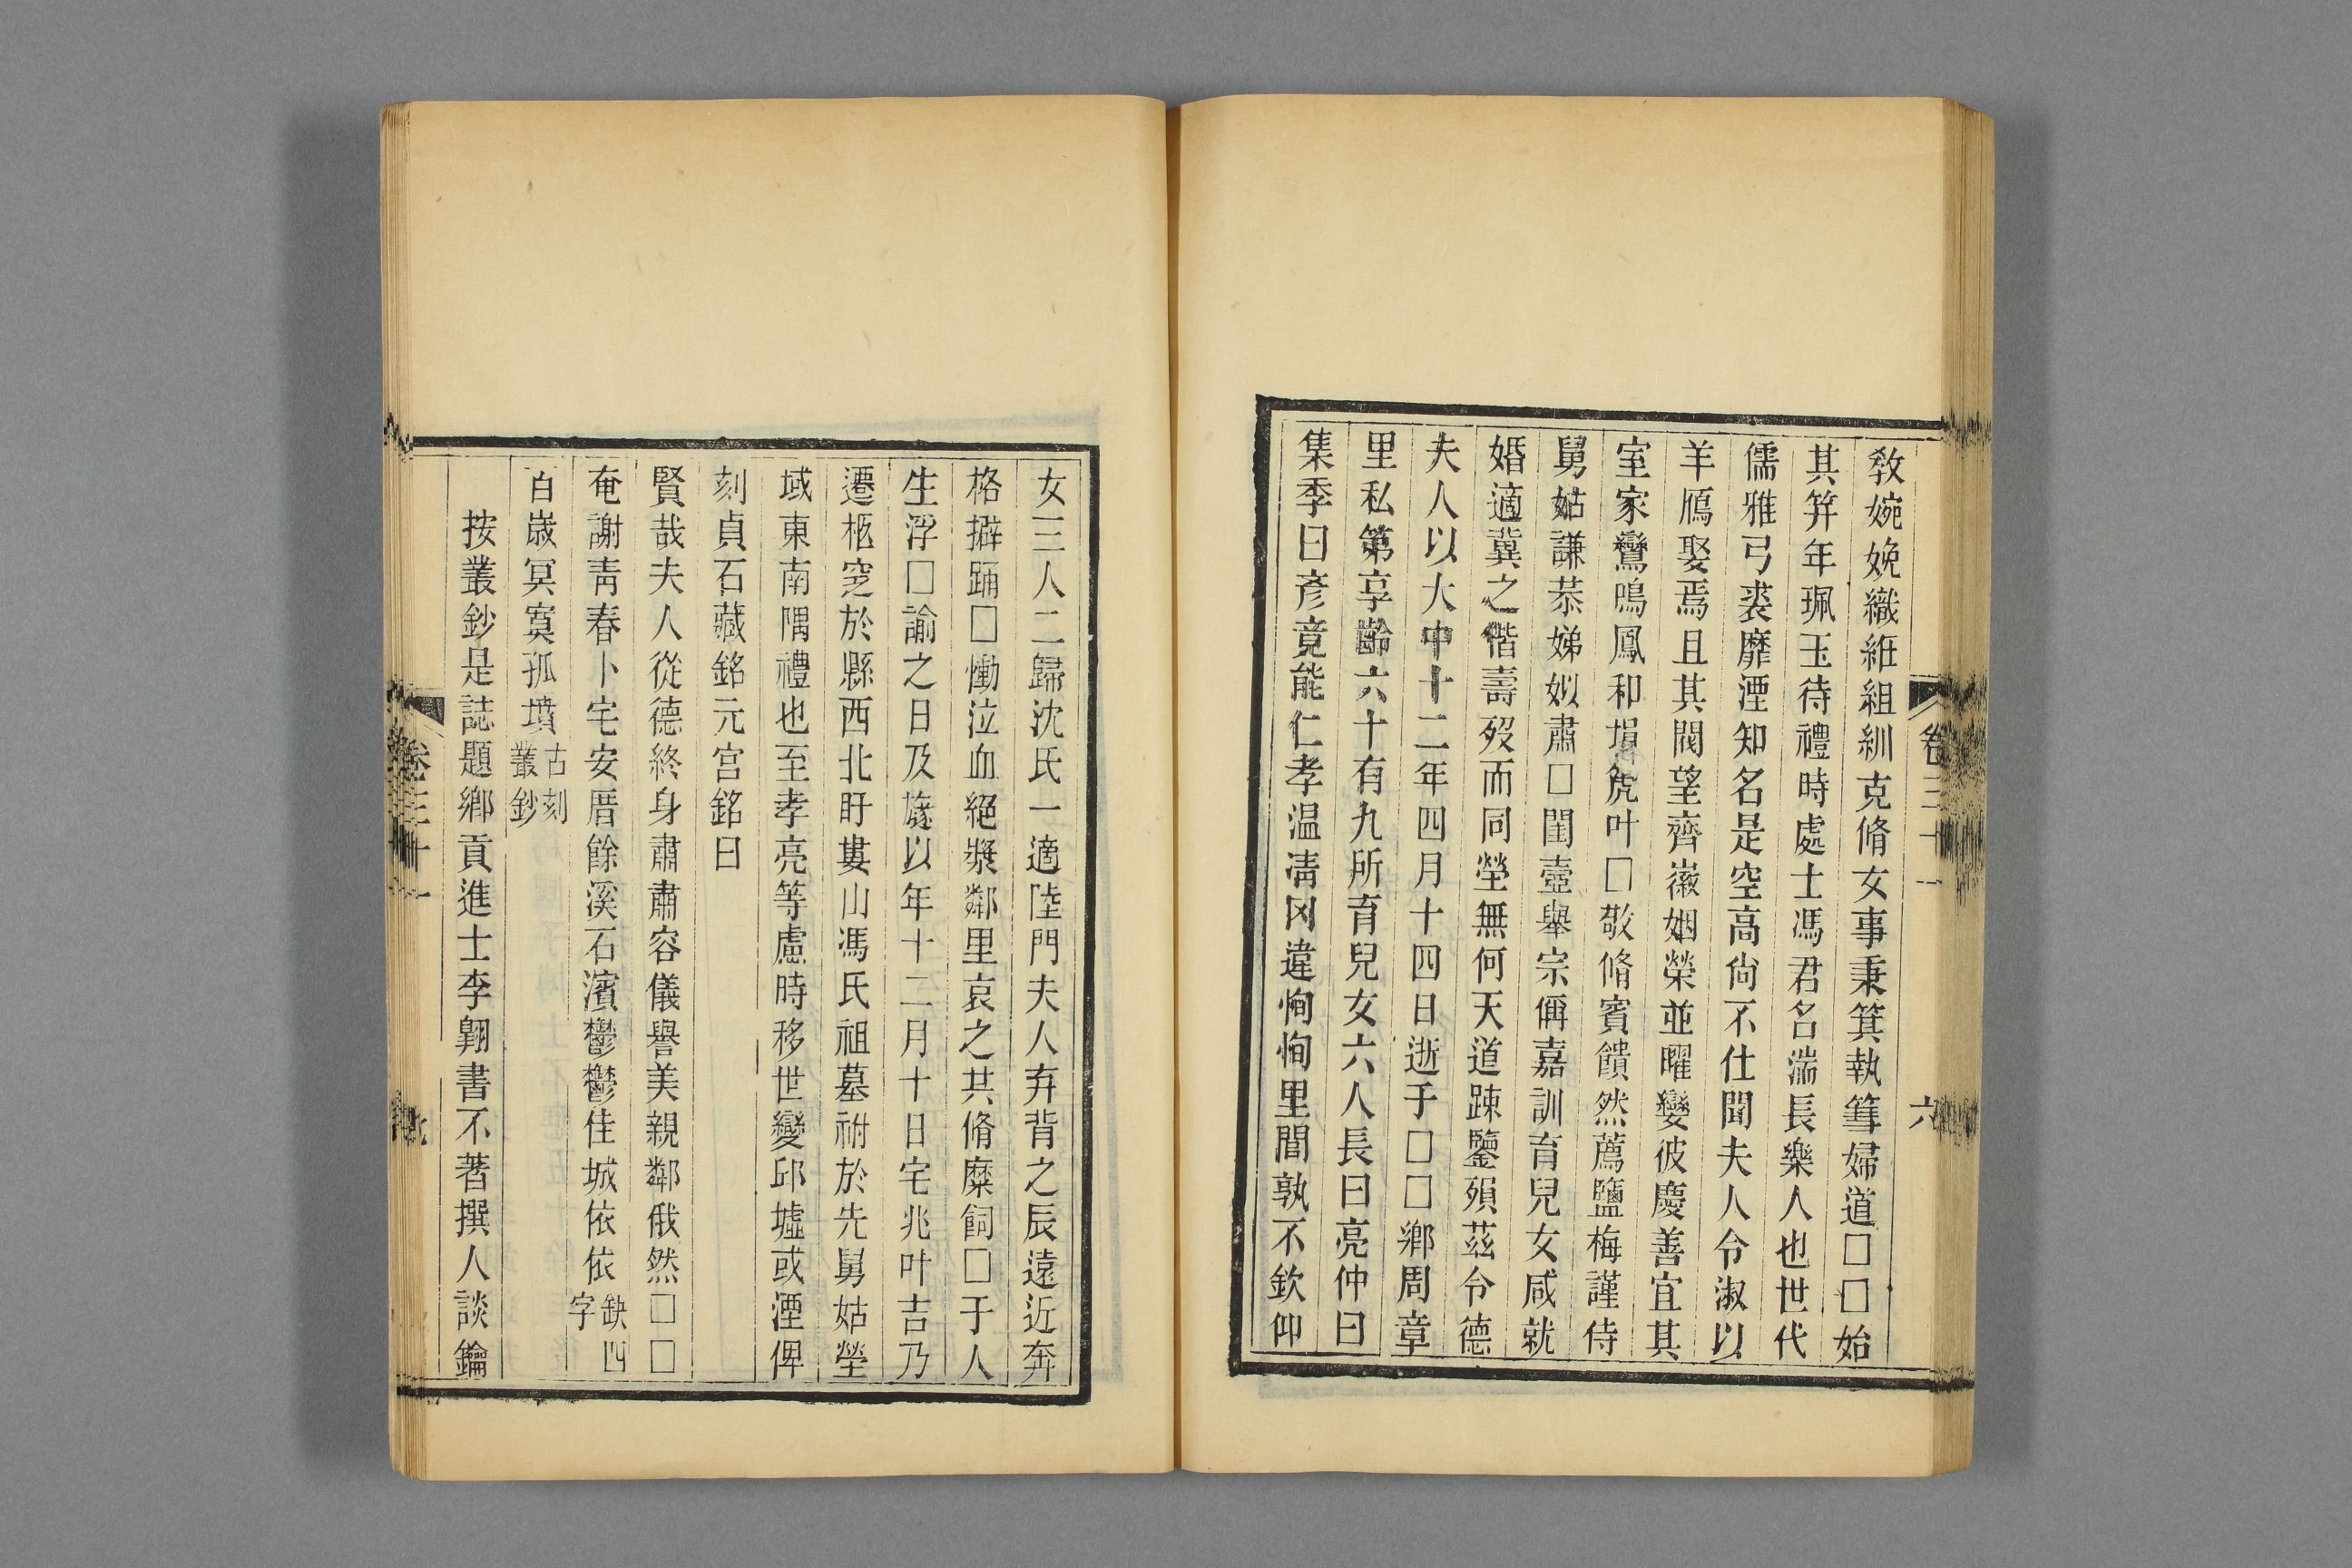 教婉娩織絍組紃克脩女事秉箕執篲婦道□□始
其笄年珮玉待禮時處士馮君名湍長樂人也世代
儒雅弓裘靡湮知名是空高尙不仕聞夫人令淑以
羊鴈娶焉且其閥望齊徽姻榮並曜孌彼慶善宜其
室家鸞鳴鳳和塤箎叶□敬脩賓饋然薦鹽梅謹侍
舅姑謙恭娣姒肅□閨壼舉宗偁嘉訓育兒女咸就
婚適冀之偕壽歿而同塋無何天道踈鑒殞茲令德
夫人以大中十二年四月十四日逝于□□鄉周章
里私第享齡六十有九所育兒女六人長曰亮仲曰
集季曰彥竟能仁孝温凊冈違恂恂里閭孰不欽仰
卷三十一
六
女三人二歸沈氏一適陸門夫人弃背之辰遠近奔
格擗踊□慟泣血絕漿鄰里哀之其脩糜飼□于人
生浮□諭之日及旞以年十二月十日宅兆叶吉乃
遷柩窆於縣西北盱婁山馮氏祖墓祔於先舅姑塋
域東南隅禮也至孝亮等慮時移世變邱墟或湮俾
刻貞石藏銘元宫銘曰
賢哉夫人從德終身肅肅容儀譽美親鄰俄然□□
奄謝靑春卜宅安厝餘溪石濱鬱鬱佳城依依缺四字
百歲冥寞孤墳古刻叢鈔
按叢鈔是誌題鄉貢進士李翺書不著撰人談鑰
卷三十一